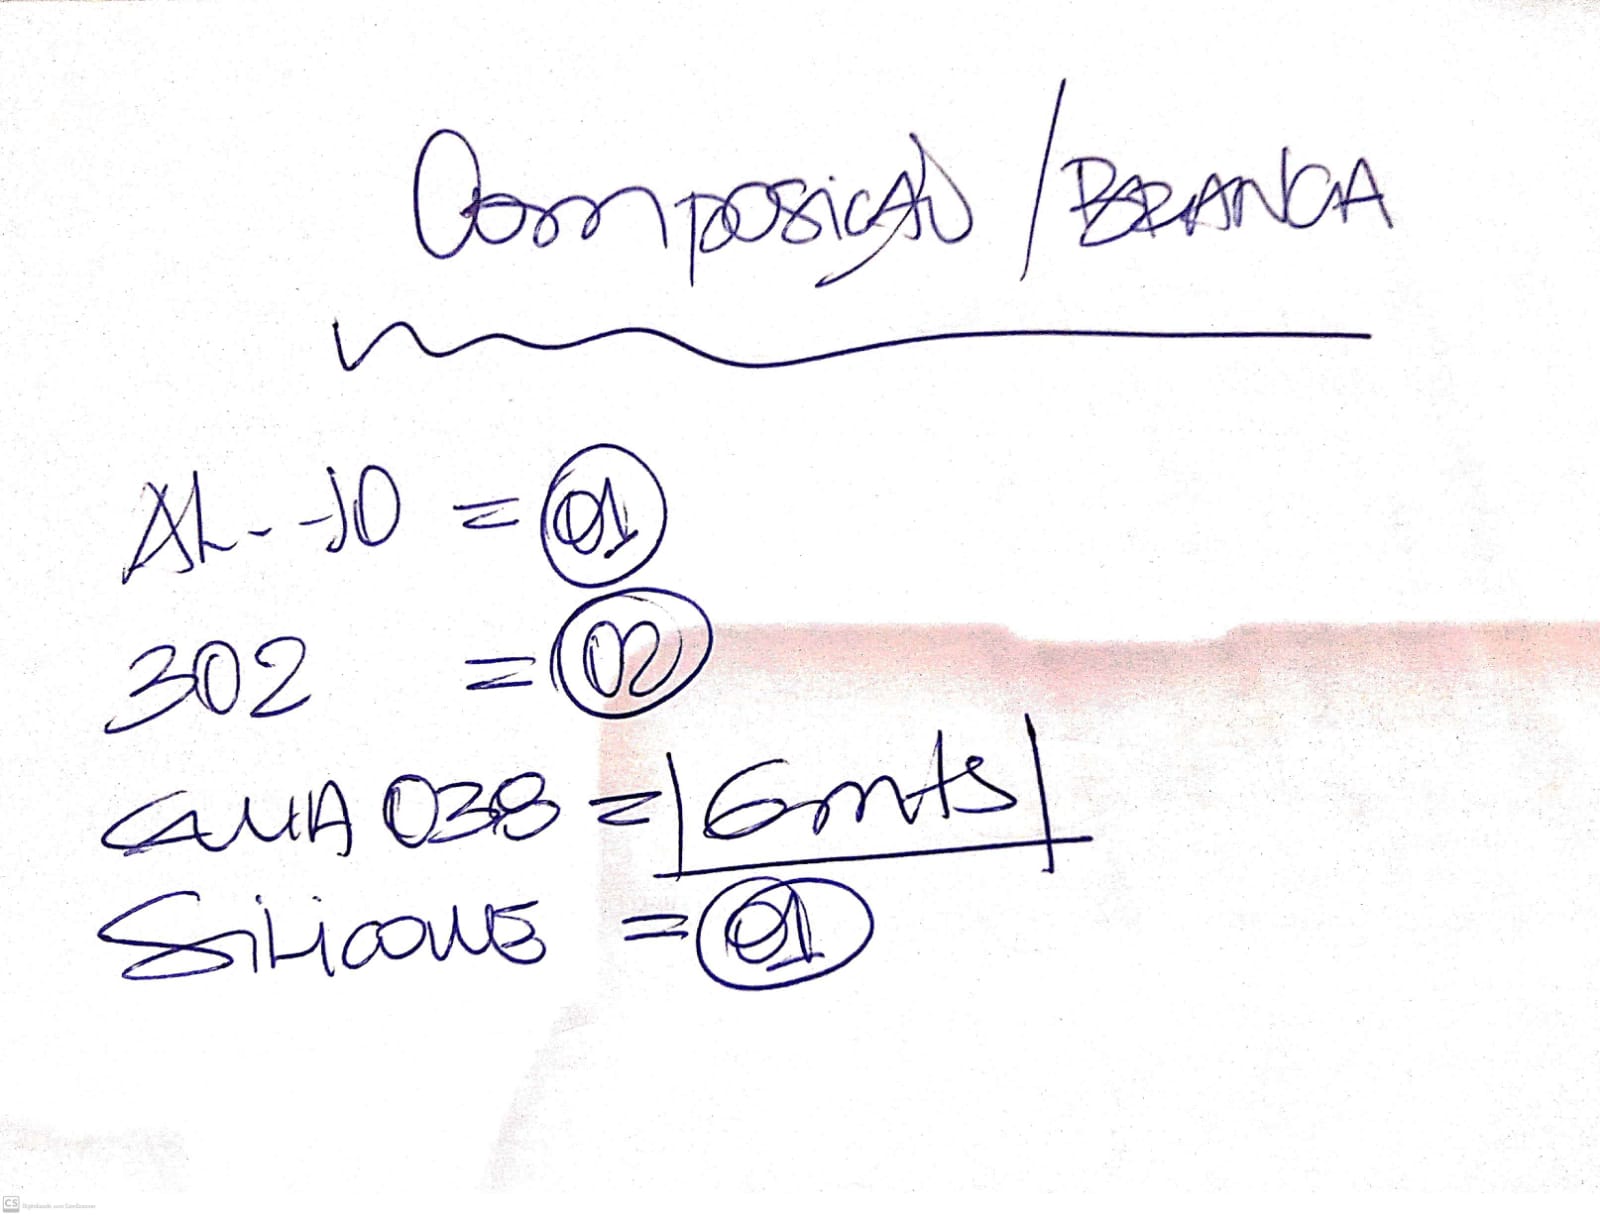 Composição / BRANCA
AL--10 = 01
302 = 02
GUIA 038 = 6mts
SiLicone = 01
CS Digitalizado com CamScanner